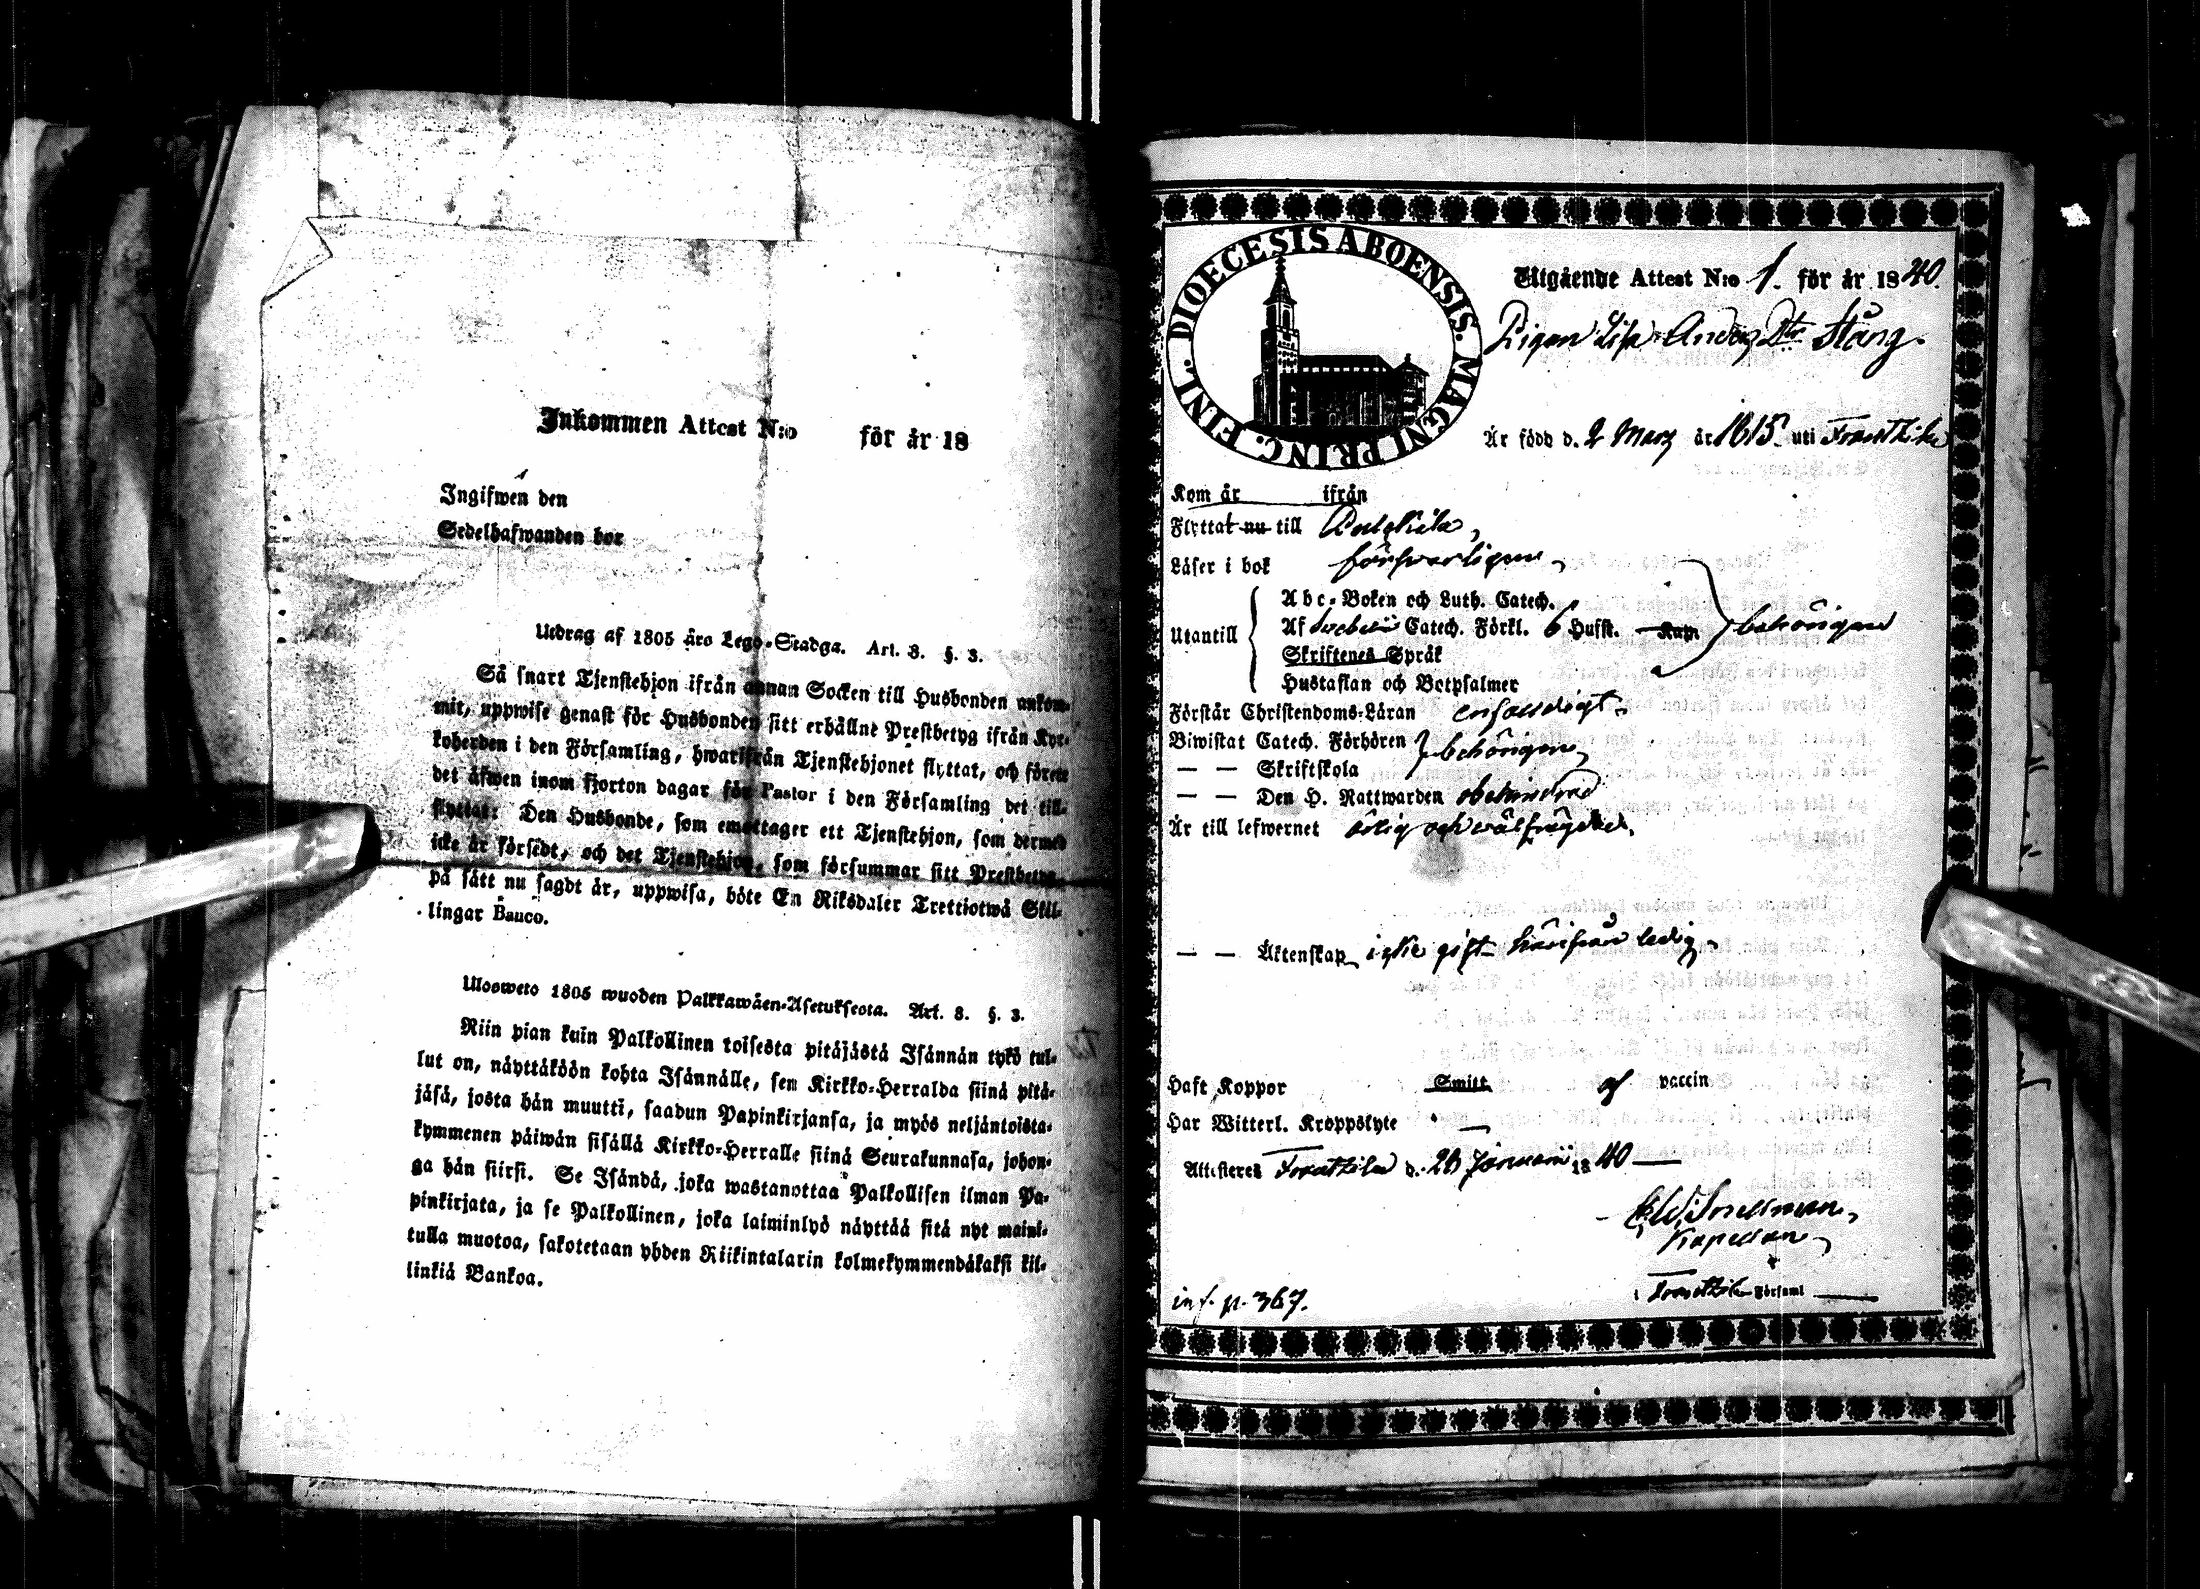 Inkommen Attest N:o för år 18
Ingifwen den
Sedelhafwanden bor
Utdrag af 1805 års Lego-Stadga. Art. 8. §. 3.
Så snart Tjenstehjon ifrån annan Socken till Husbonden ankom-
mit, uppwise genast för Husbonden sitt erhållne Prestbetyg ifrån Kyr-
koherden i den Församling, hwarifrån Tjenstehjonet flyttat, och förete
det äfwen inom fjorton dagar för Pastor i den Församling det till-
flyttat: Den Husbonde, som emottager ett Tjenstehjon, som dermed
icke är försedt, och det Tjenstehjon, som försummar sitt Prestbetyg,
på sätt nu sagdt är, uppwisa, böte En Riksdaler Trettiotwå Skil-
lingar Banco.
Ulosweto 1805 wuoden Palkkawäen-Asetuksesta. Art. 8. §. 3.
Niin pian kuin Palkollinen toisesta pitäjästä Isännän tykö tul-
lut on, näyttäköön kohta Isännälle, sen Kirkko-Herralda siinä pitä-
jäsä, josta hän muutti, saadun Papinkirjansa, ja myös neljäntoista-
kymmenen päiwän sisällä Kirkko-Herralle siinä Seurakunnasa, johon-
ga hän siirsi. Se Isändä, joka wastanottaa Palkollisen ilman Pa-
pinkirjata, ja se Palkollinen, joka laiminlyö näyttää sitä nyt maini-
tulla muotoa, sakotetaan yhden Riikintalarin kolmekymmendäkaksi kil-
linkiä Bankoa.
DIOECESIS ABOENSIS. MAGNI PRINC. FINL.
Utgående Attest N:o 1. för år 1840.
Pigan Lisa Anders Dtr Stång.
Är född d. 2 Mars år 1815 uti Frantsila
Kom år ifrån
Flyttat nu till Pulkkila,
Läser i bok försvarligen,
Abc-Boken och Luth. Catech.
Utantill Af Catech. Förkl. 6 Hufst. Kap behörigen
Skriftenes Språk
Hustaflan och Botpsalmer
Förstår Christendoms-Läran enfaldigt.
Biwistat Catech. Förhören behörigen,
— — Skriftskola
— — Den H. Nattwarden obehindrad
Är till lefwernet ärlig och välfrägdad.
— — Äktenskap icke gift härifrån ledig,
Haft Koppor Smitt af vaccin
Har Witterl. Kroppslyte —
Attesteras Frantsila d. Januari 1840
Kapellan,
Frantsila Församl
inf. p. 367.